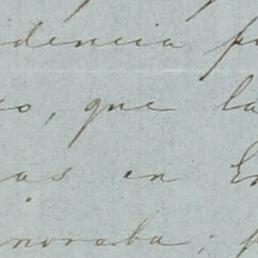 dencia p
o, que la
as en E
noraba; p